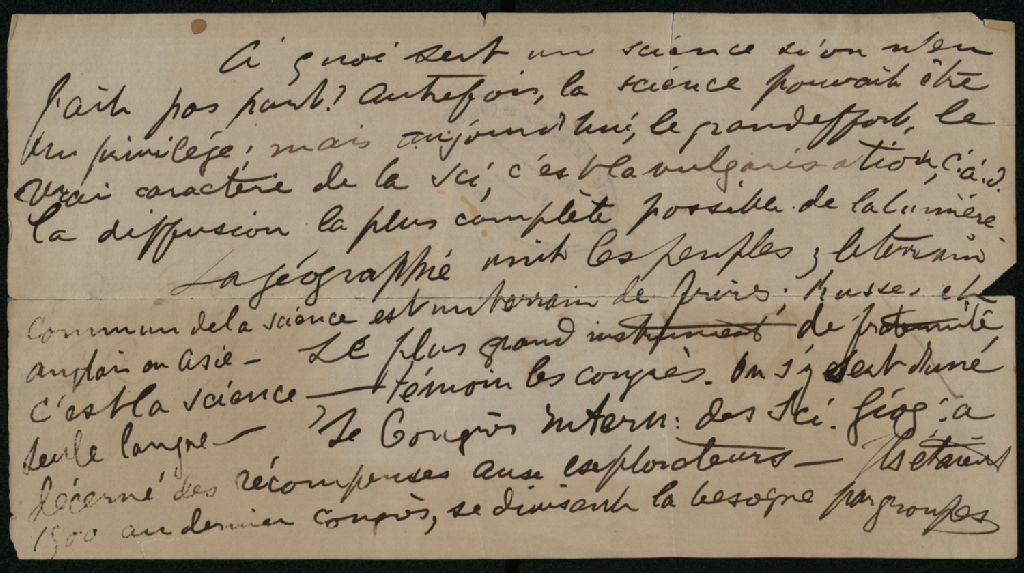 À quoi sert une science si on n'en
fait pas part? Autrefois, la science pouvait être
un privilège; mais aujourd'hui, le grand effort, le
vrai caractère de la Sci, c'est la vulgarisation, c.à.d.
la diffusion la plus complète possible de la lumière.
La géographie unit les peuples; le terrain
commun de la science est un terrain de frères. Russes et
anglais en Asie — Le plus grand instrument de fraternité
c'est la science — témoin les congrès. On s'y sert d'une
seule langue — Le Congrès intern: des Sci. Géog: a
décerné des récompenses aux explorateurs — Ils étaient
1500 au dernier congrès, se divisant la besogne par groupes